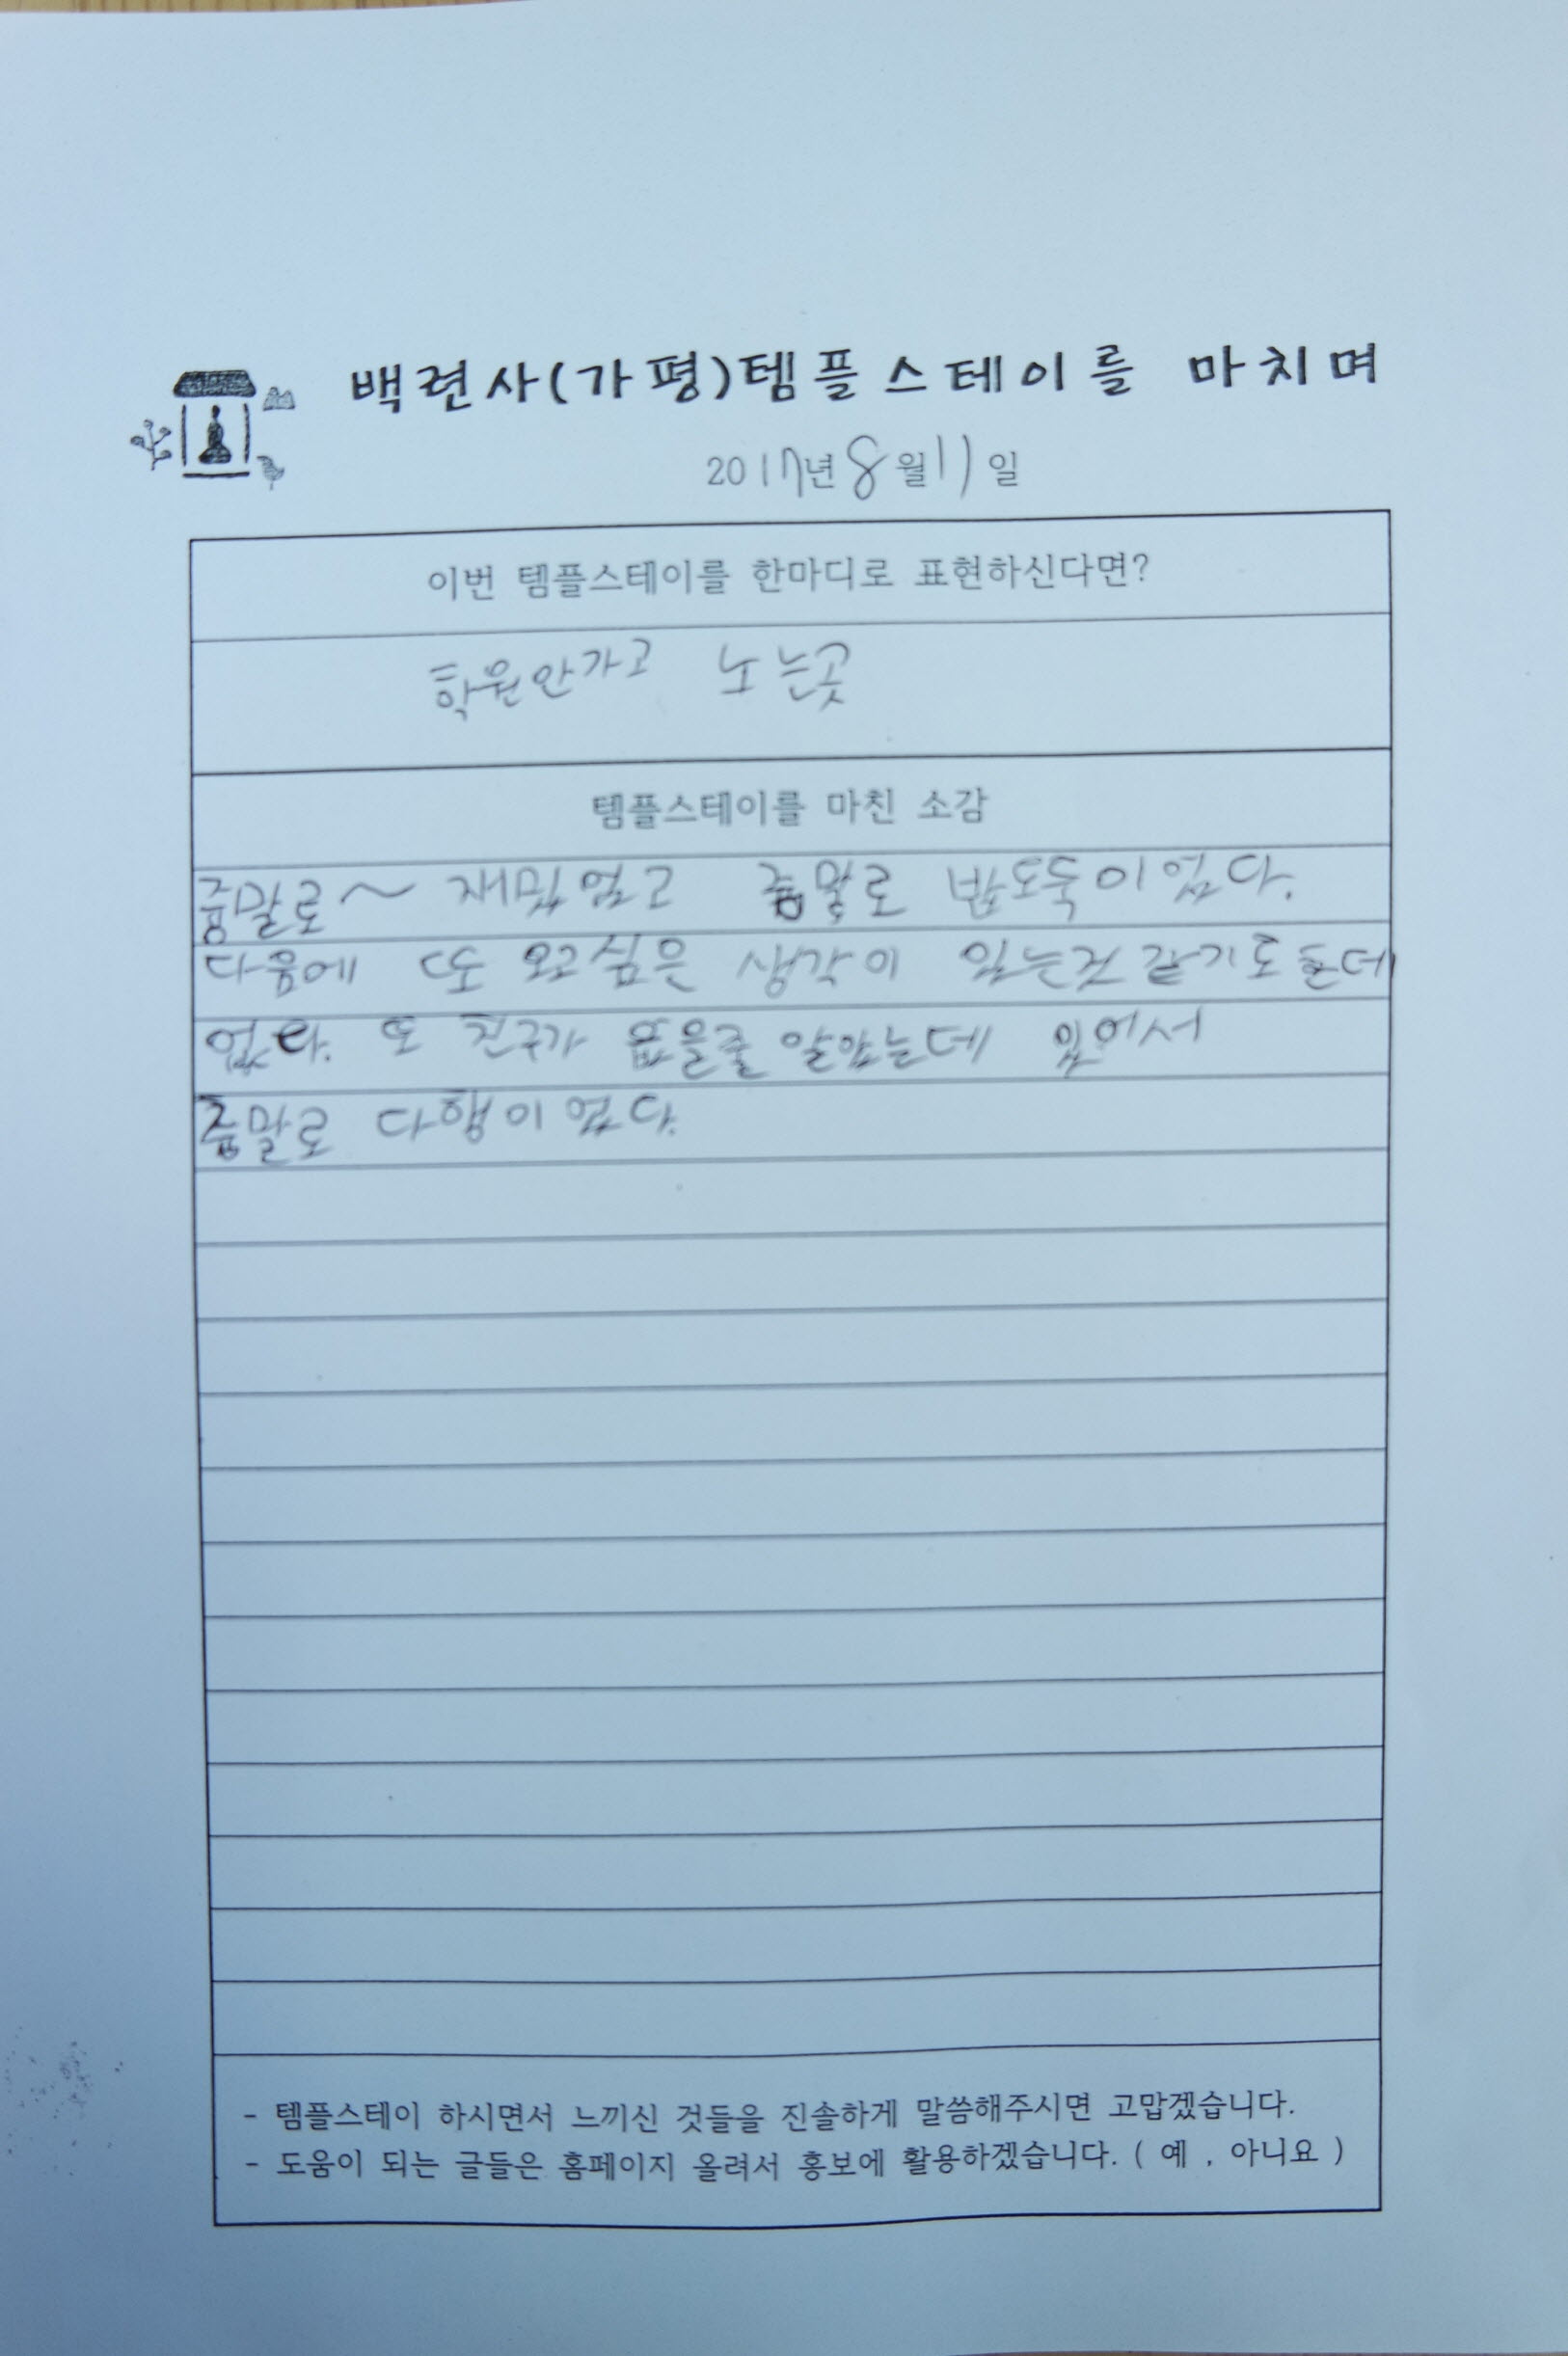 백련사(가평)템플스테이를 마치며
2017년 8월 11일
이번 템플스테이를 한마디로 표현하신다면?
학원안가고 노는곳
템플스테이를 마친 소감
중말로~ 재밌었고 중말로 밥도둑이었다.
다음에 또 오고싶은 생각이 있는것 같기도 한데
없다. 또 친구가 없을줄 알았는데 있어서
중말로 다행이었다.
- 템플스테이 하시면서 느끼신 것들을 진솔하게 말씀해주시면 고맙겠습니다.
- 도움이 되는 글들은 홈페이지 올려서 홍보에 활용하겠습니다. ( 예 , 아니요 )